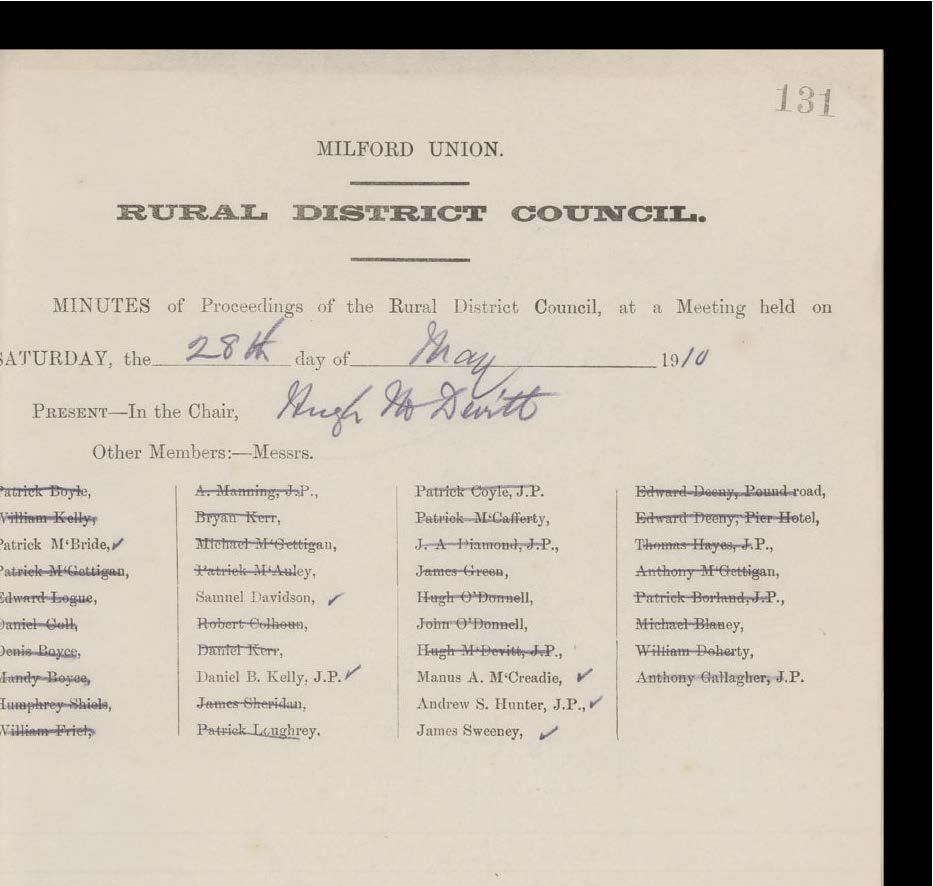 131
MILFORD UNION.
RURAL DISTRICT COUNCIL.
MINUTES of Proceedings of the Rural District Council, at a Meeting held on
SATURDAY, the 28th day of May 1910
PRESENT—In the Chair, Hugh McDevitt
Other Members:—Messrs.
Patrick Boyle,
William Kelly,
Patrick M‘Bride,
Patrick M‘Gettigan,
Edward Logue,
Daniel Coll,
Denis Boyce,
Mandy Boyce,
Humphrey Shiels,
William Friel,
A. Manning, J.P.,
Bryan Kerr,
Michael M‘Gettigan,
Patrick M‘Auley,
Samuel Davidson,
Robert Colhoun,
Daniel Kerr,
Daniel B. Kelly, J.P.
James Sheridan,
Patrick Loughrey,
Patrick Coyle, J.P.
Patrick M‘Cafferty,
J. A Diamond, J.P.,
James Green,
Hugh O’Donnell,
John O’Donnell,
Hugh M‘Devitt, J.P.,
Manus A. M‘Creadie,
Andrew S. Hunter, J.P.,
James Sweeney,
Edward Deeny, Pound road,
Edward Deeny, Pier Hotel,
Thomas Hayes, J.P.,
Anthony M‘Gettigan,
Patrick Borland, J.P.,
Michael Blaney,
William Doherty,
Anthony Gallagher, J.P.